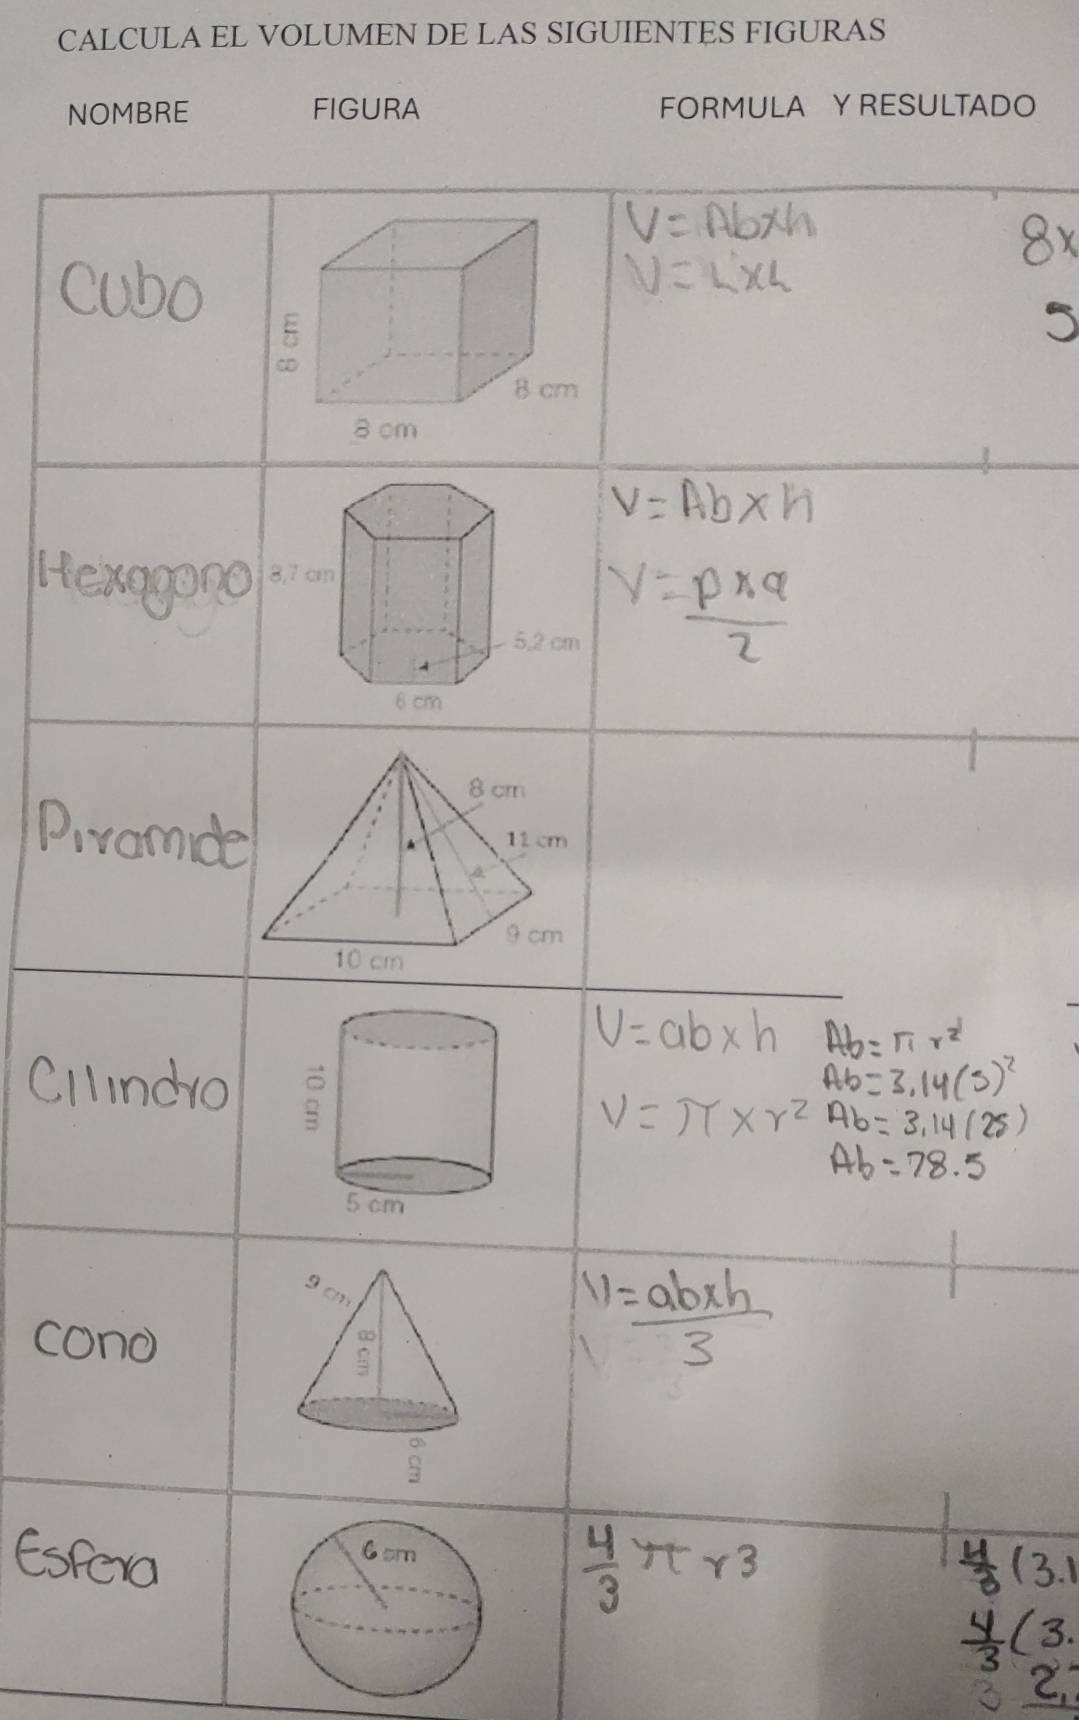 CALCULA EL VOLUMEN DE LAS SIGUIENTES FIGURAS
NOMBRE FIGURA FORMULA Y RESULTADO
Cubo
8 cm
8 cm
8 cm
V=Abxh
V=
8x
5
Hexagono
8,7 cm
5,2 cm
6 cm
V=Abxh
V=pxa
2
Piramide
8 cm
11 cm
9 cm
10 cm
Cilindro
10 cm
5 cm
V=abxh
V=πxr²
Ab=πr²
Ab=3.14(5)²
Ab=3.14(25)
Ab=78.5
cono
9 cm
8 cm
6 cm
V=abxh
3
Esfera
6 cm
4/3 π r3
4/3 (3.1
4/3 (3.
3 2.